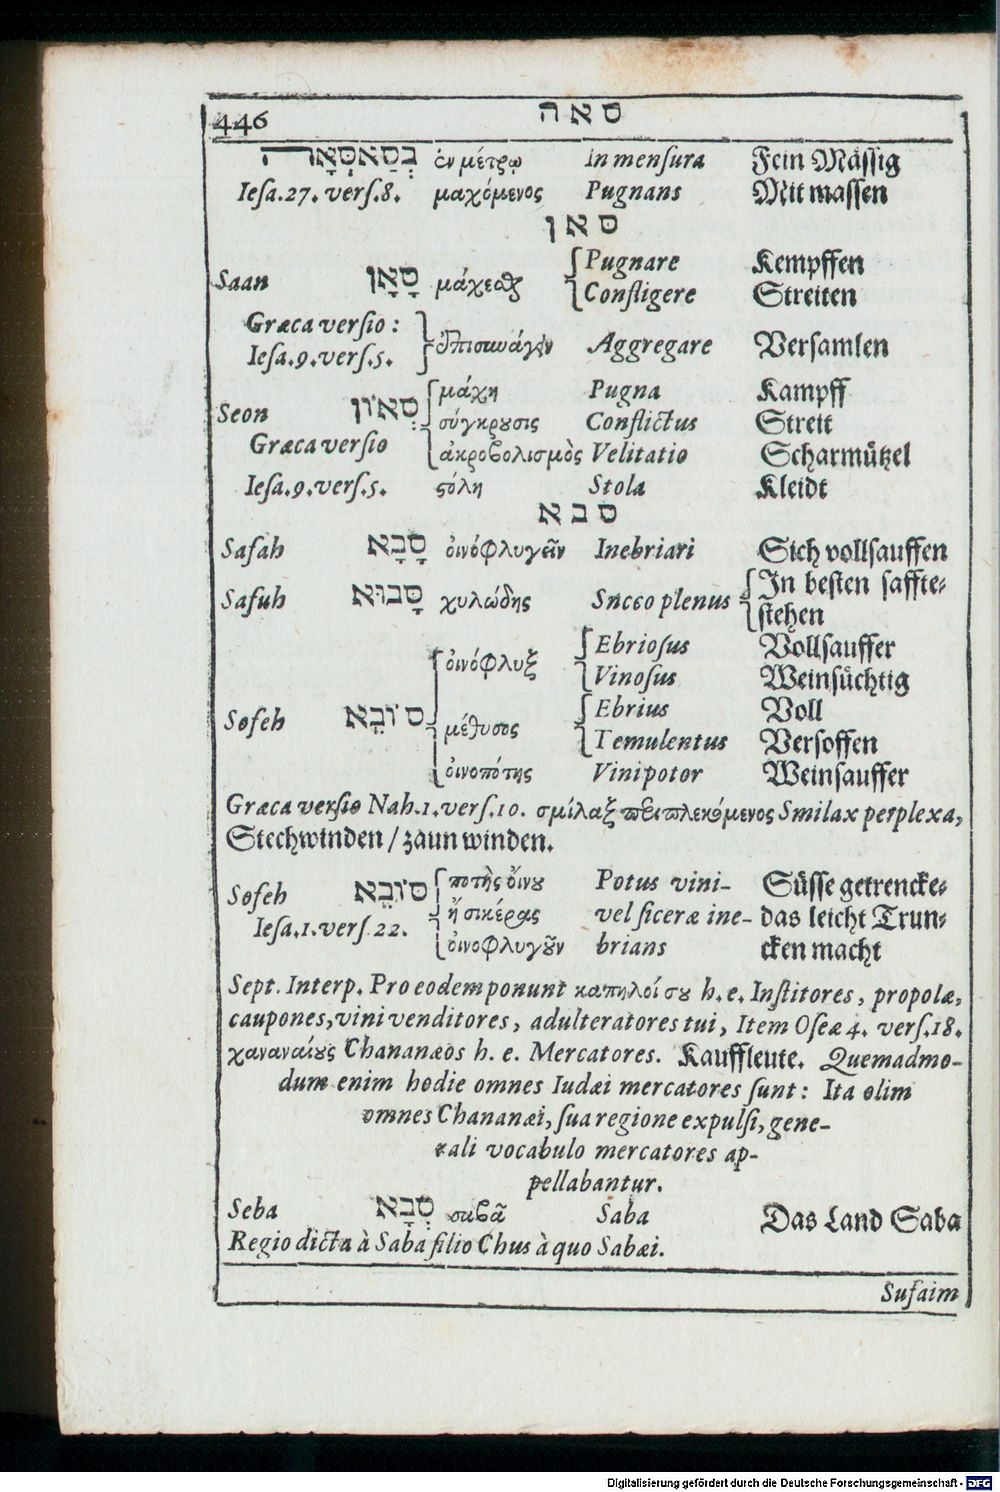 446 סאה
בְּסַאסְּאָה ἐν μέτρῳ In mensura Fein Mässig
Iesa.27. vers.8. μαχόμενος Pugnans Mit massen
סאן
Saan סָאָן μάχεσθαι Pugnare Kempffen
Confligere Streiten
Græca versio:
Iesa.9.vers.5. ἐπισυνάγειν Aggregare Versamlen
Seon סְאוֹן μάχη Pugna Kampff
σύγκρουσις Conflictus Streit
Græca versio ἀκροβολισμὸς Velitatio Scharmützel
Iesa.9.vers.5. στόλη Stola Kleidt
סבא
Safah סָבָא οἰνόφλυγεῖν Inebriari Sich vollsauffen
Safuh סָבוּא χυλώδης Succo plenus In besten saffte-
stehen
οἰνόφλυξ Ebriosus Vollsauffer
Vinosus Weinsüchtig
Sofeh סוֹבֵא μέθυσος Ebrius Voll
Temulentus Versoffen
οἰνοπότης Vinipotor Weinsauffer
Græca versio Nah.1.vers.10. σμίλαξ περιπλεκόμενος Smilax perplexa,
Stechwinden / zaun winden.
Sofeh סוֹבֵא ποτὴς οἴνου Potus vini- Süsse getrencke-
Iesa.1.vers 22. ἢ σικέρας vel siceræ ine- das leicht Trun-
οἰνοφλυγοῦν brians cken macht
Sept. Interp. Pro eodem ponunt καπηλοί σου h.e. Institores, propolæ,
caupones, vini venditores, adulteratores tui, Item Oseæ 4. vers.18.
χαναναίους Chananæos h.e. Mercatores. Kauffleute. Quemadmo-
dum enim hodie omnes Iudæi mercatores sunt: Ita olim
omnes Chananæi, sua regione expulsi, gene-
rali vocabulo mercatores ap-
pellabantur.
Seba סְבָא σαβᾶ Saba Das Land Saba
Regio dicta à Saba filio Chus à quo Sabæi.
Sufaim
Digitalisierung gefördert durch die Deutsche Forschungsgemeinschaft - DFG